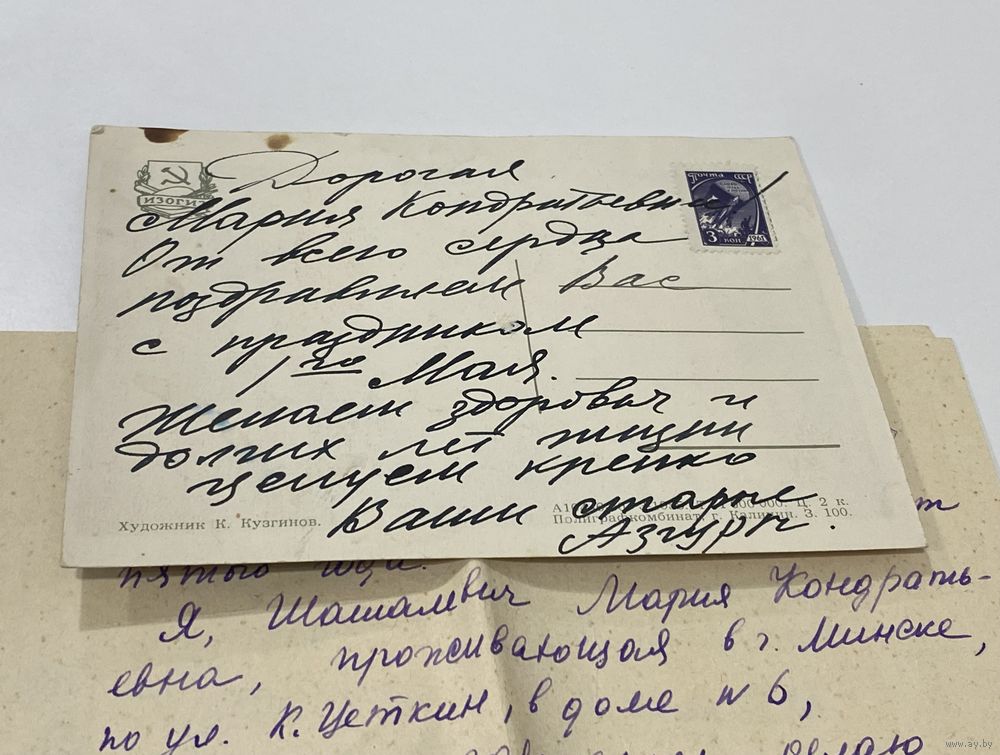 ИЗОГИЗ
Почта СССР
3 коп 1961
Дорогая
Мария Кондратьевна!
От всего сердца
поздравляем Вас
с праздником
1го Мая.
Желаем здоровья и
долгих лет жизни
целуем крепко
Ваши старые
Азгуры.
Художник К. Кузгинов.
Ц. 2 к.
Полиграфкомбинат, г. Калинин. З. 100.
пятого года.
Я, Шашалевич Мария Кондрать-
евна, проживающая в г. Минске,
по ул. К. Цеткин, в доме №6,
делаю
www.ay.by